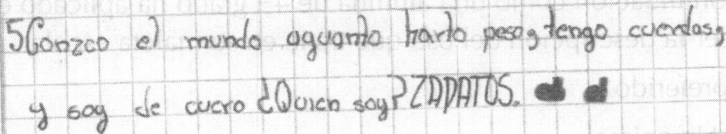 5 Conozco el mundo aguanto harto peso, tengo cuerdas,
y soy de cuero ¿Quien soy? ZAPATOS.